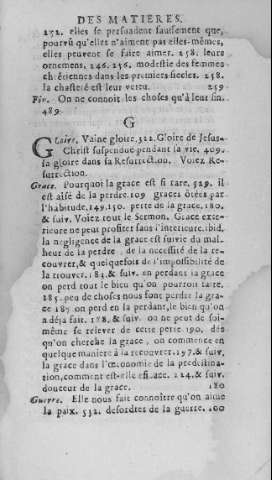 DES MATIERES.
252. elles se persuadent faussement que,
pourvû qu'elles n'aiment pas elles-mêmes,
elles peuvent se faire aimer. 258. leurs
ornemens, 246. 256. modestie des femmes
chrétiennes dans les premiers siecles. 258.
la chasteté est leur vertu. 259
Fin. On ne connoît les choses qu'à leur fin.
489.
G
Gloire, Vaine gloire. 322. Gloire de Jesus-
Christ suspenduë pendant sa vie, 409.
sa gloire dans sa Resurrection. Voiez Re-
surrection.
Grace. Pourquoi la grace est si rare. 529. il
est aisé de la perdre. 109 graces ôtées par
l'habitude. 149. 150. perte de la grace, 180.
& suiv. Voiez tout le Sermon. Grace exte-
rieure ne peut profiter sans l'interieure. ibid.
la negligence de la grace est suivie du mal-
heur de la perdre, de la necessité de la re-
couvrer, & quelquefois de l'impossibilité de
la trouver. 183. & suiv. en perdant la grace
on perd tout le bien qu'on pourroit faire.
185. peu de choses nous font perdre la gra-
ce 187 on perd en la perdant, le bien qu'on
a déja fait. 188. & suiv. on ne peut de soi-
même se relever de cette perte 190. dès
qu'on cherche la grace, on commence en
quelque maniere à la recouvrer. 197. & suiv.
la grace dans l'œconomie de la predestina-
tion, comment est-elle efficace. 224. & suiv.
douceur de la grace. 180
Guerre. Elle nous fait connoître qu'on aime
la paix. 532. desordres de la guerre. 100